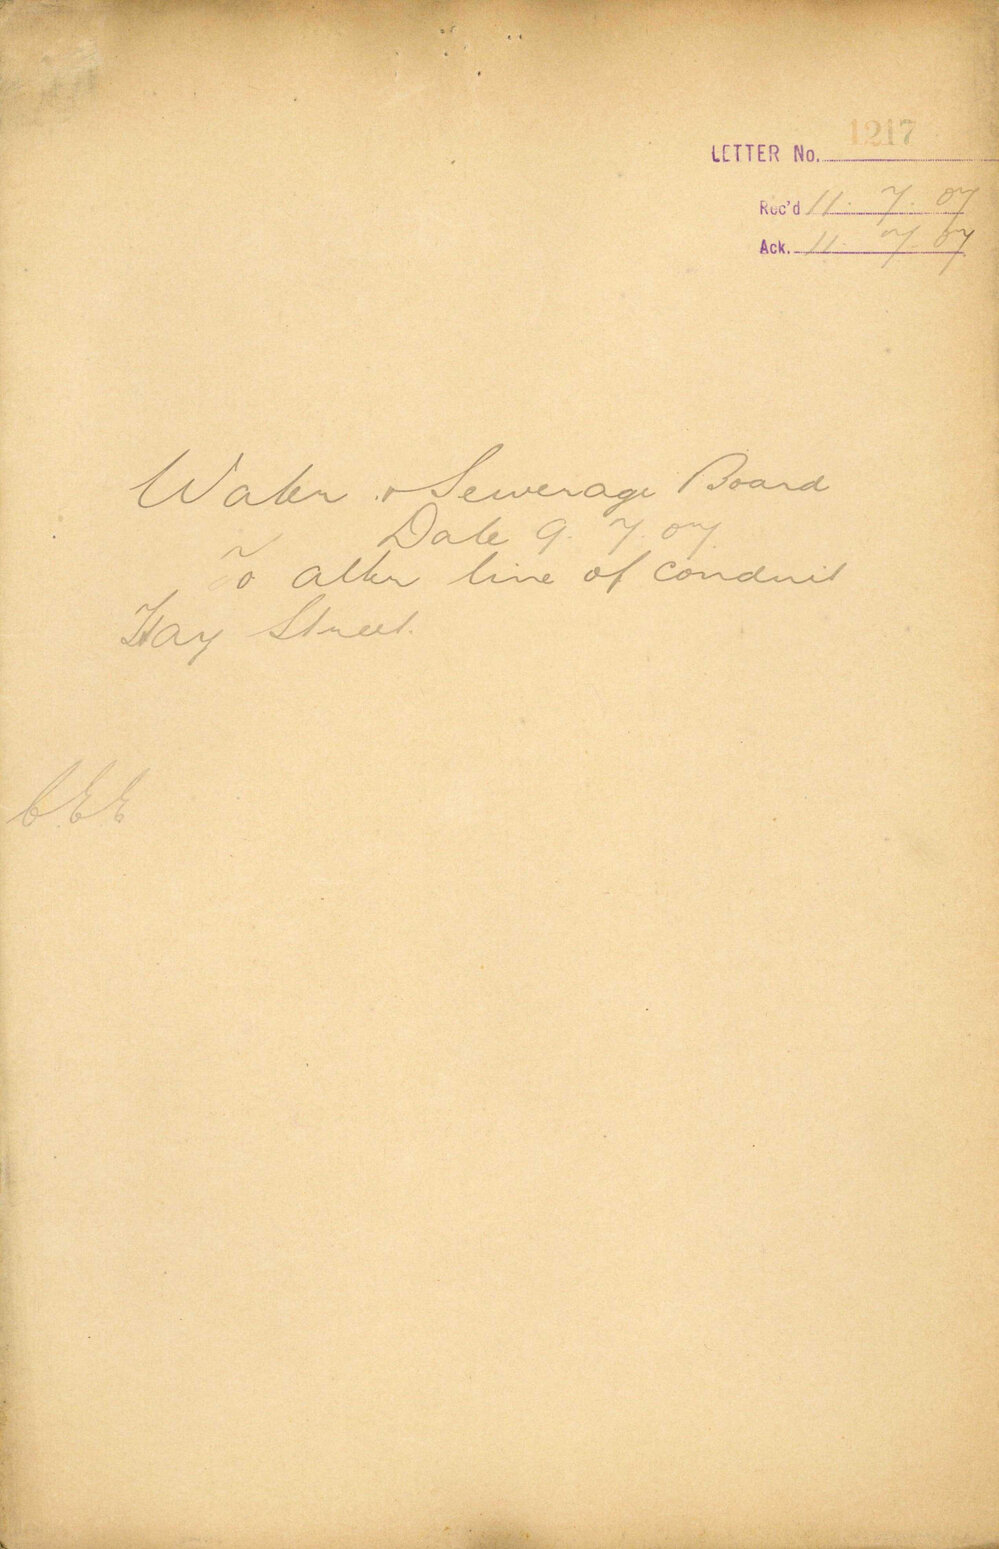 LETTER No. 1217
Rec'd 11. 7. 07
Ack. 11. 7. 07
Water & Sewerage Board
Date 9. 7. 07.
To alter line of conduit
Hay Street.
C.E.E